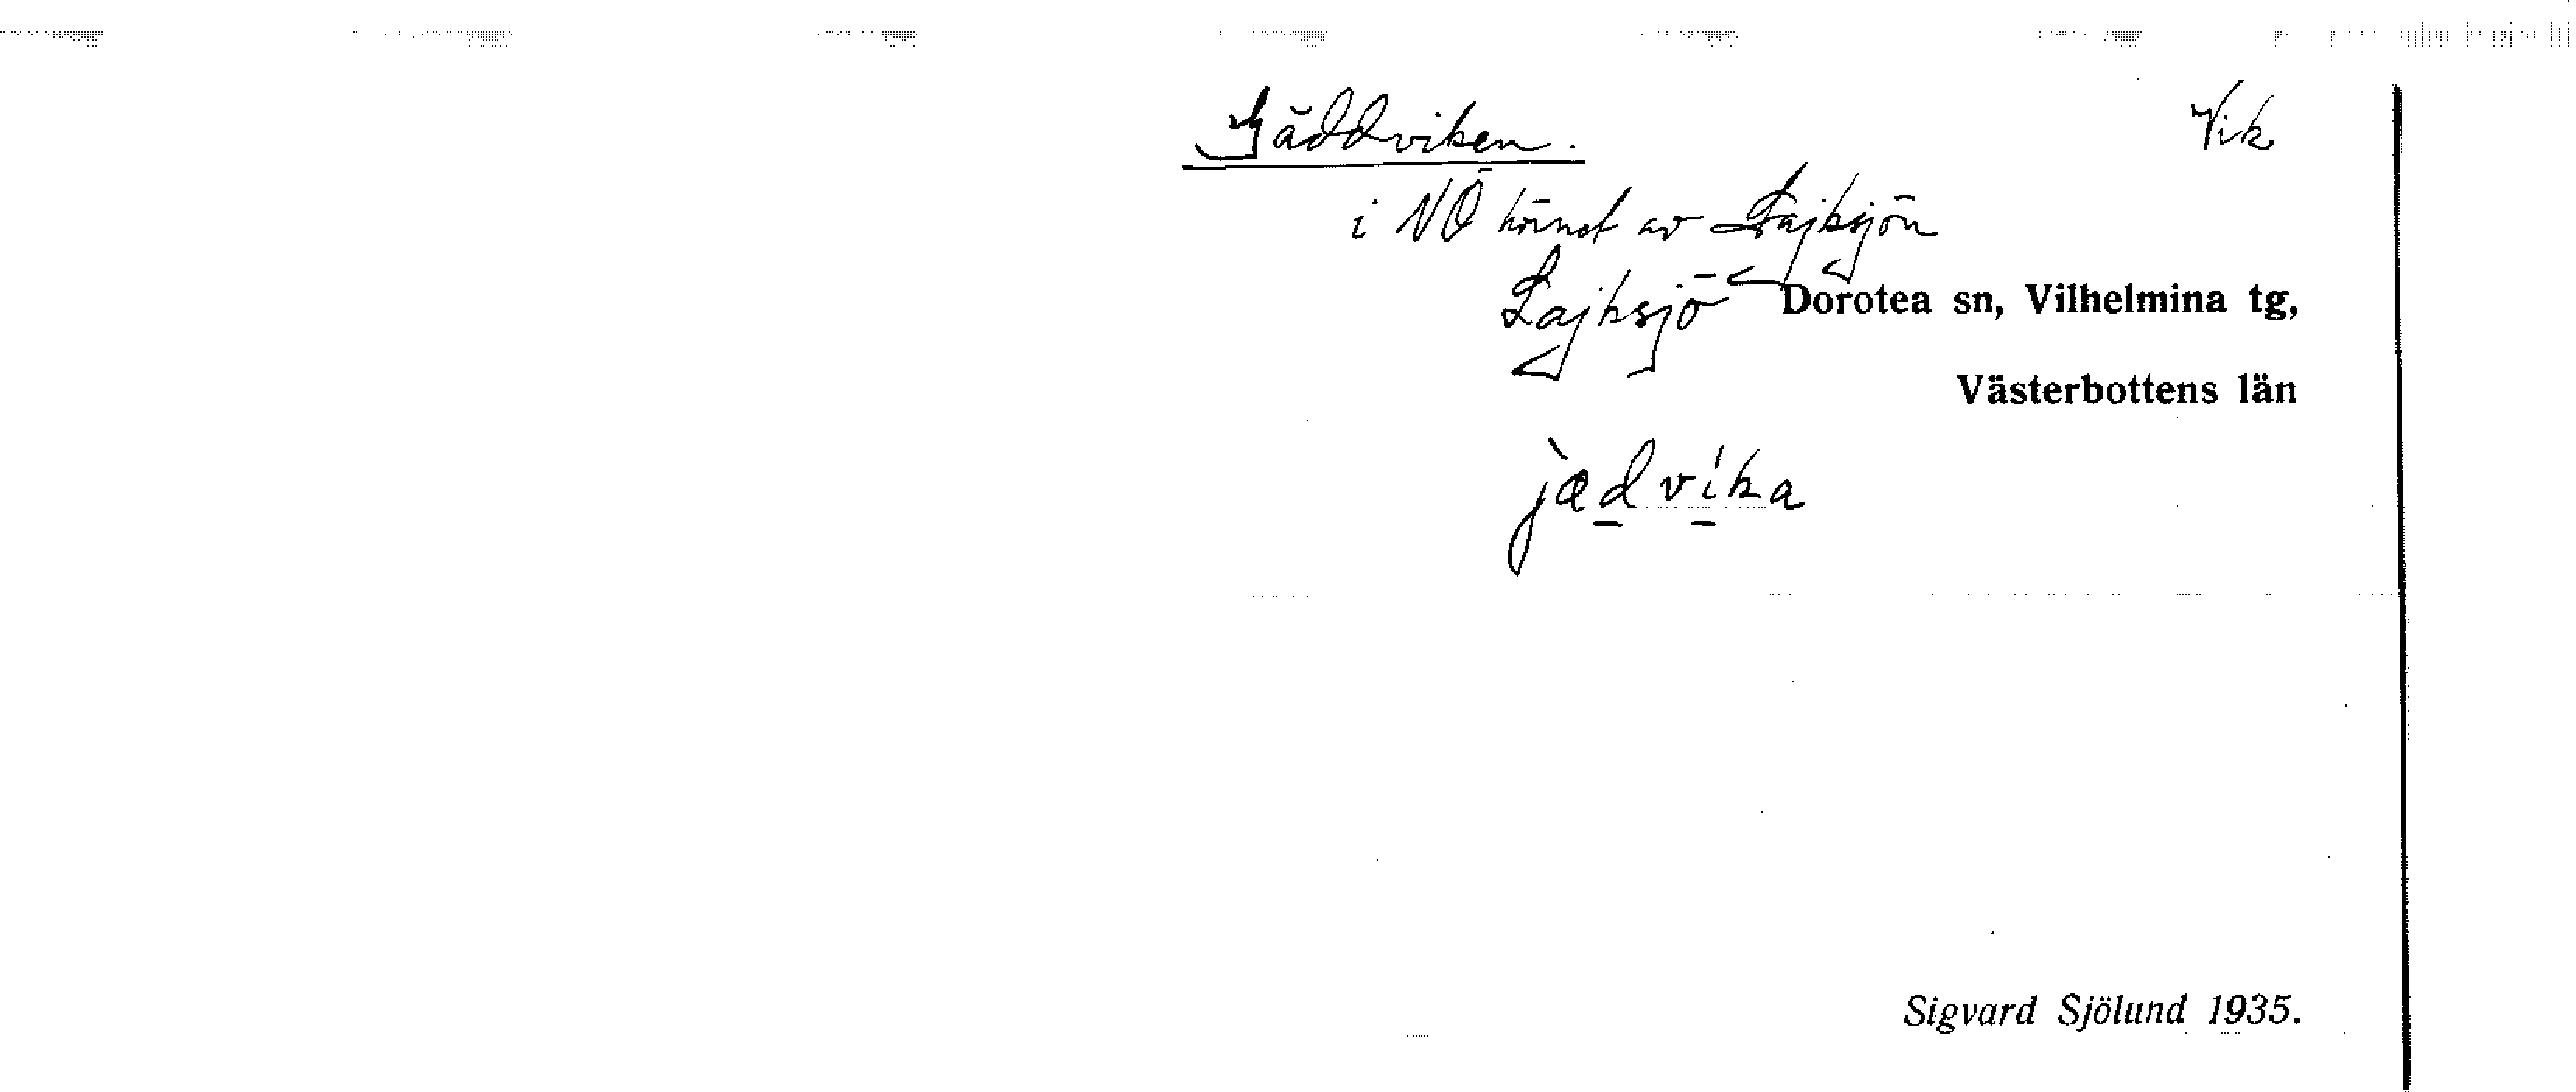 Gäddviken. Vik
i NÖ hörnet av Lajksjön
Lajksjö Dorotea sn, Vilhelmina tg,
Västerbottens län
j̀æd̲v̲íka
Sigvard Sjölund 1935.